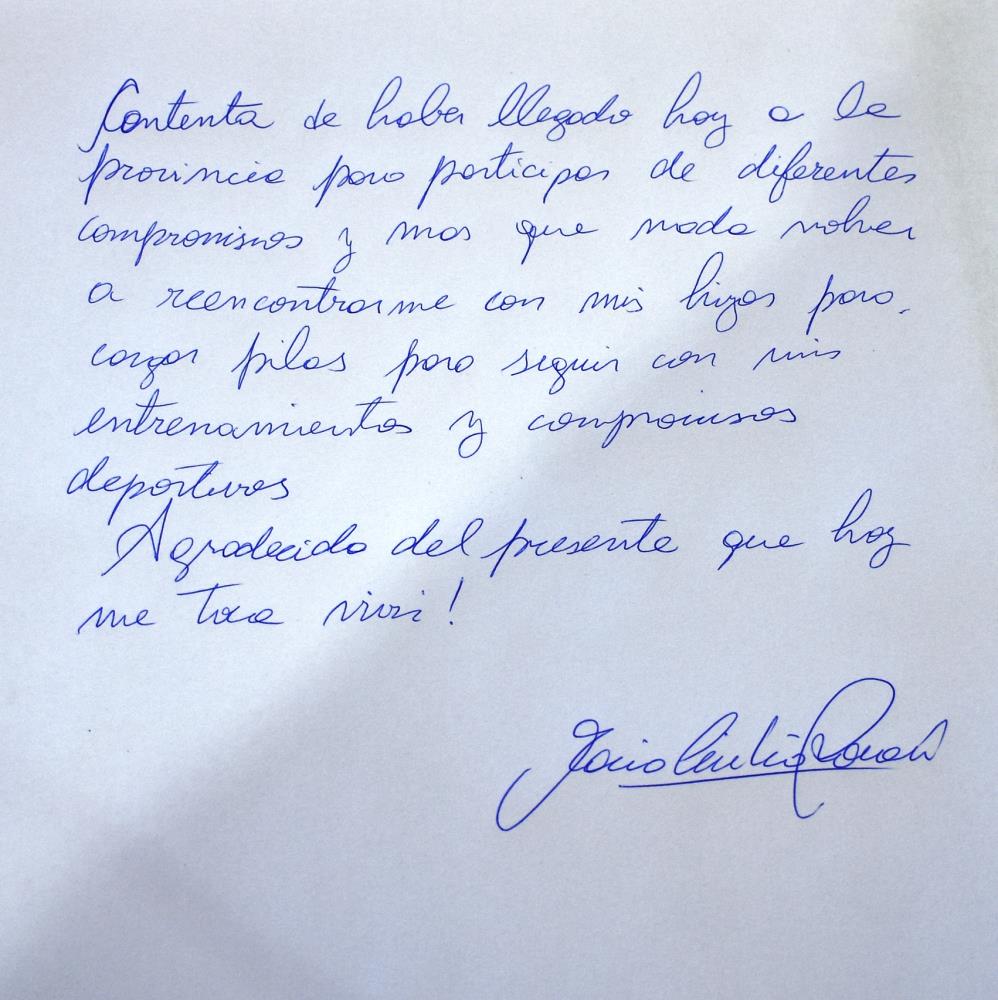 Contenta de haber llegado hoy a la
provincia para participar de diferentes
compromisos y mas que nada volver
a reencontrarme con mis hijos para
cargar pilas para seguir con mis
entrenamientos y compromisos
deportivos
Agradecida del presente que hoy
me toca vivir!